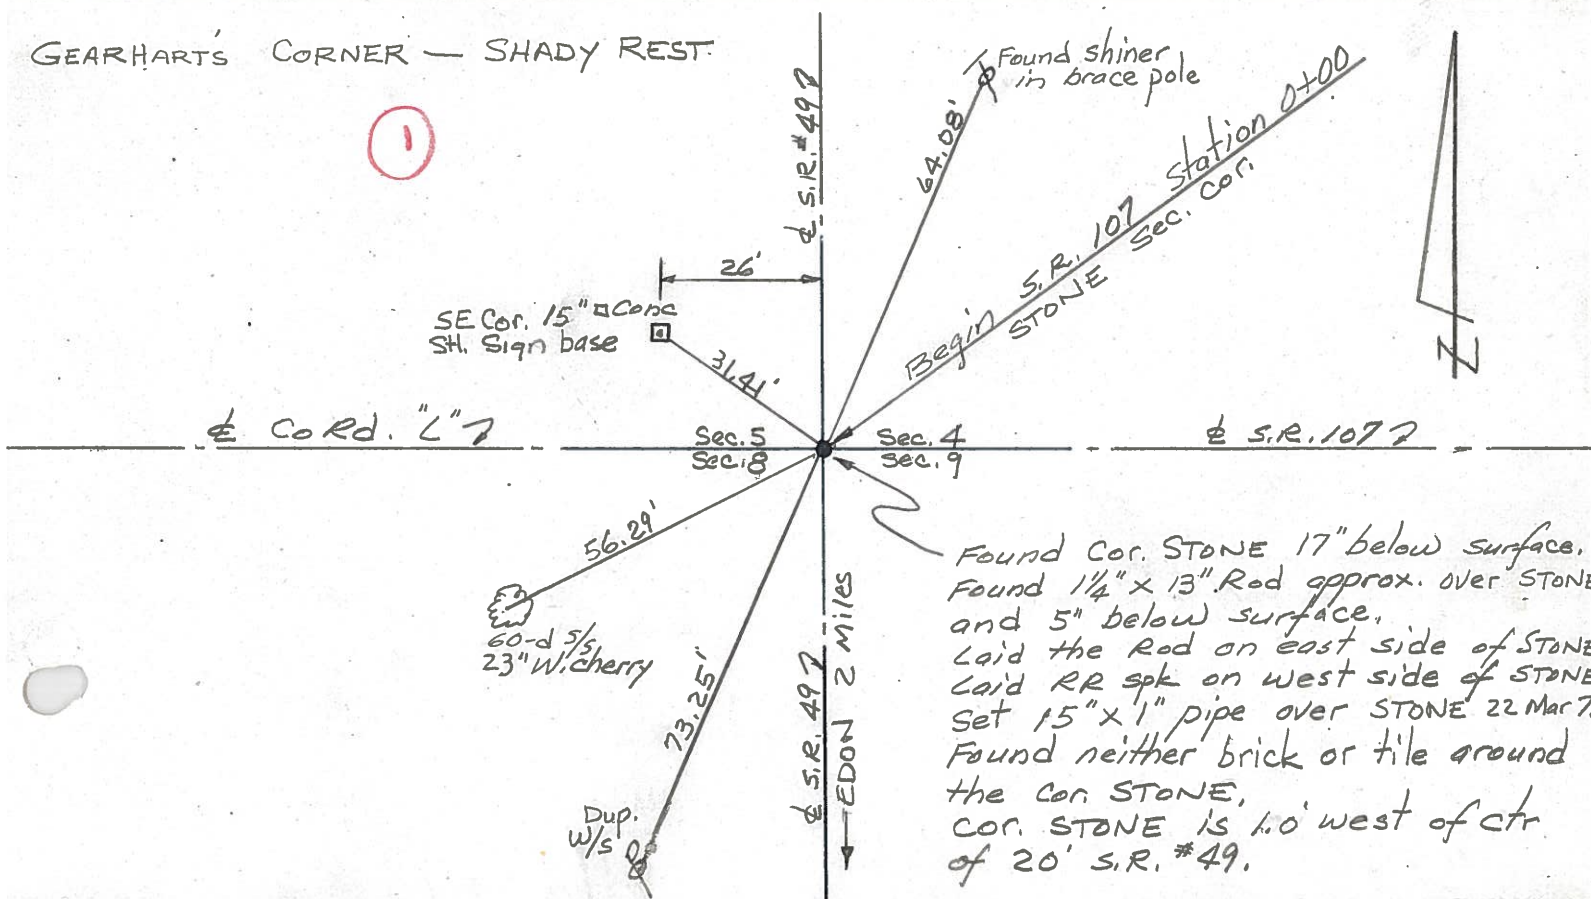 GEARHART'S CORNER — SHADY REST.
1
℄ S.R. #49
Found shiner
in brace pole
64.08'
Begin S.R. 107 Station 0+00
STONE Sec. Cor.
N
26'
SE Cor. 15" □ Conc
SH. Sign base
31.41'
℄ Co Rd. "L"
Sec. 5
Sec. 8
Sec. 4
Sec. 9
℄ S.R. 107
56.29'
60-d s/s
23" W. cherry
73.25'
Dup.
W/s
℄ S.R. 49
EDON 2 Miles
Found Cor. STONE 17" below surface.
Found 1¼" X 13" Rod approx. over STONE
and 5" below surface.
Laid the Rod on east side of STONE
Laid RR spk on west side of STONE
Set 15" X 1" pipe over STONE 22 Mar 7
Found neither brick or tile around
the cor. STONE.
Cor. STONE is 1.0' west of ctr
of 20' S.R. #49.